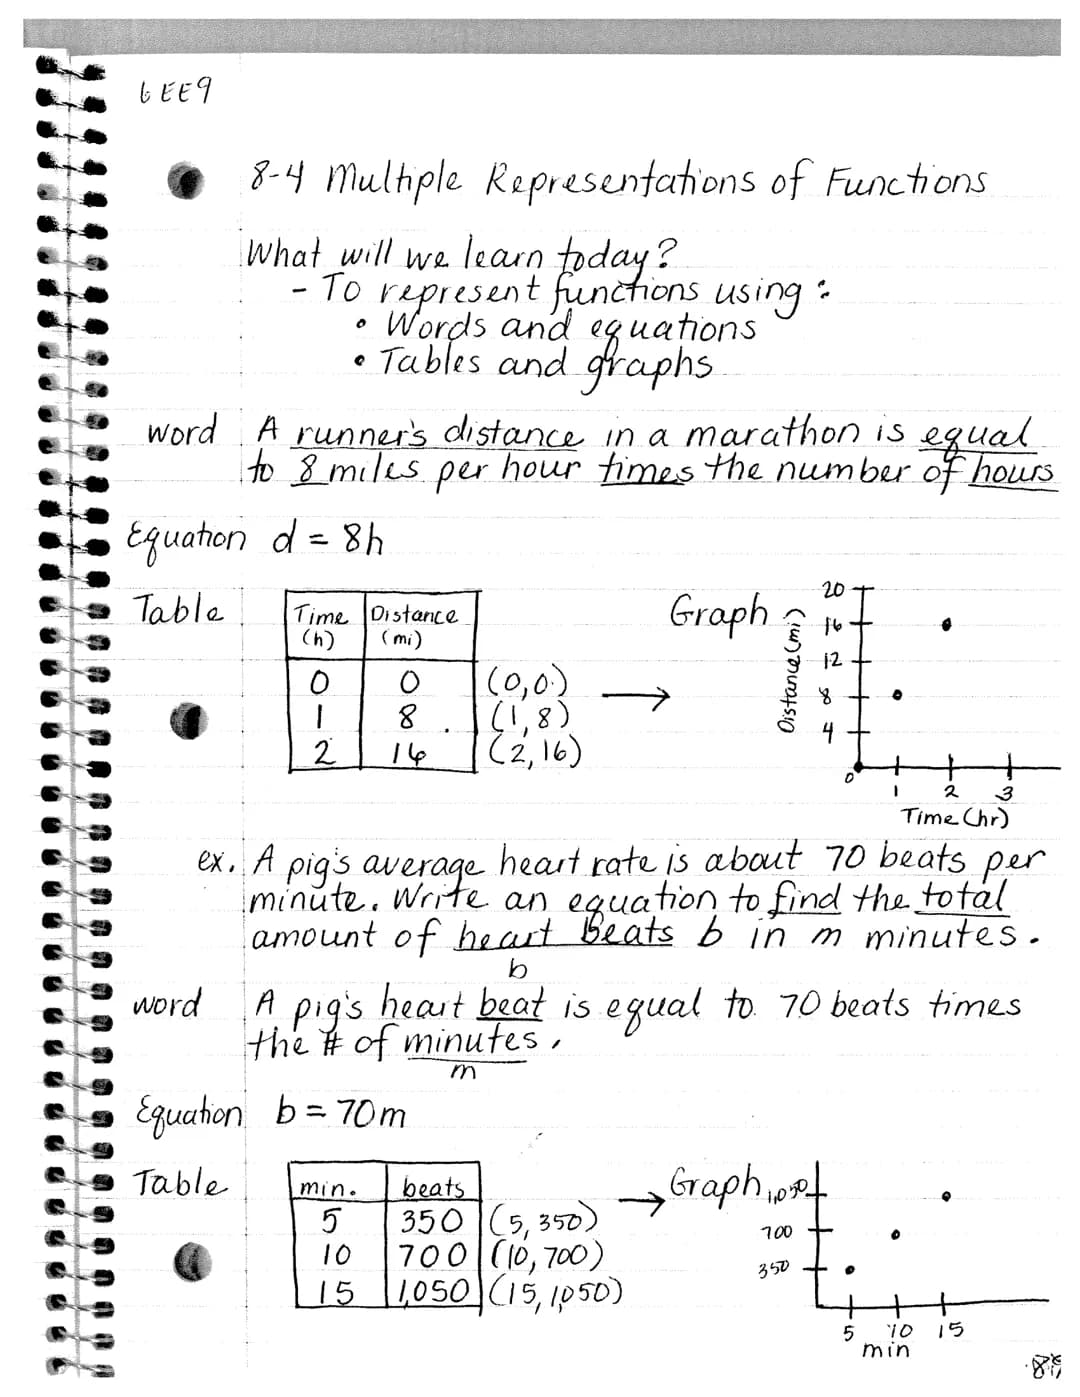 6 EE9
8-4 Multiple Representations of Functions
What will we learn today?
- To represent functions using:
• Words and equations
• Tables and graphs
word A runner's distance in a marathon is equal
to 8 miles per hour times the number of hours
Equation d = 8h
Table
Time (h) Distance (mi)
0 0 (0,0)
1 8 (1,8)
2 16 (2,16)
→ Graph
Distance (mi)
20
16
12
8
4
0
1 2 3
Time (hr)
ex. A pig's average heart rate is about 70 beats per
minute. Write an equation to find the total
amount of heart beats b in m minutes.
b
word A pig's heart beat is equal to 70 beats times
the # of minutes.
m
Equation b = 70m
Table
min. beats
5 350 (5, 350)
10 700 (10, 700)
15 1,050 (15, 1,050)
→ Graph
1,050
700
350
5 10 15
min